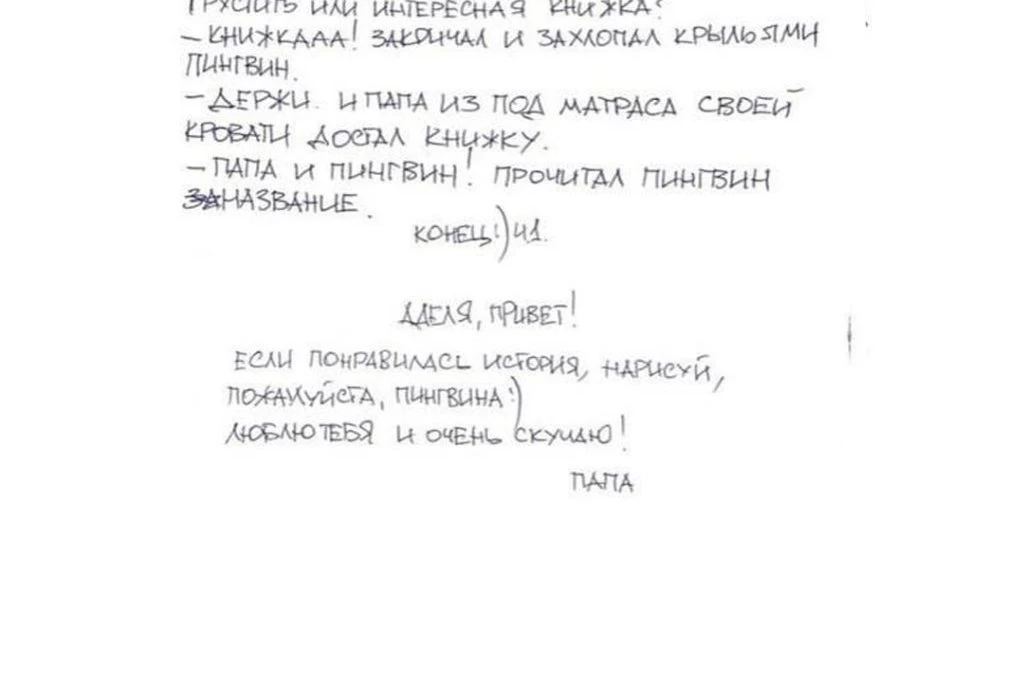 ГРУСТИТЬ ИЛИ ИНТЕРЕСНАЯ КНИЖКА?
– КНИЖКААА! ЗАКРИЧАЛ И ЗАХЛОПАЛ КРЫЛЬЯМИ
ПИНГВИН.
– ДЕРЖИ. И ПАПА ИЗ ПОД МАТРАСА СВОЕЙ
КРОВАТИ ДОСТАЛ КНИЖКУ.
– ПАПА И ПИНГВИН! ПРОЧИТАЛ ПИНГВИН
НАЗВАНИЕ.
КОНЕЦ:) Ч1.
АДЕЛЯ, ПРИВЕТ!
ЕСЛИ ПОНРАВИЛАСЬ ИСТОРИЯ, НАРИСУЙ,
ПОЖАЛУЙСТА, ПИНГВИНА:)
ЛЮБЛЮ ТЕБЯ И ОЧЕНЬ СКУЧАЮ!
ПАПА